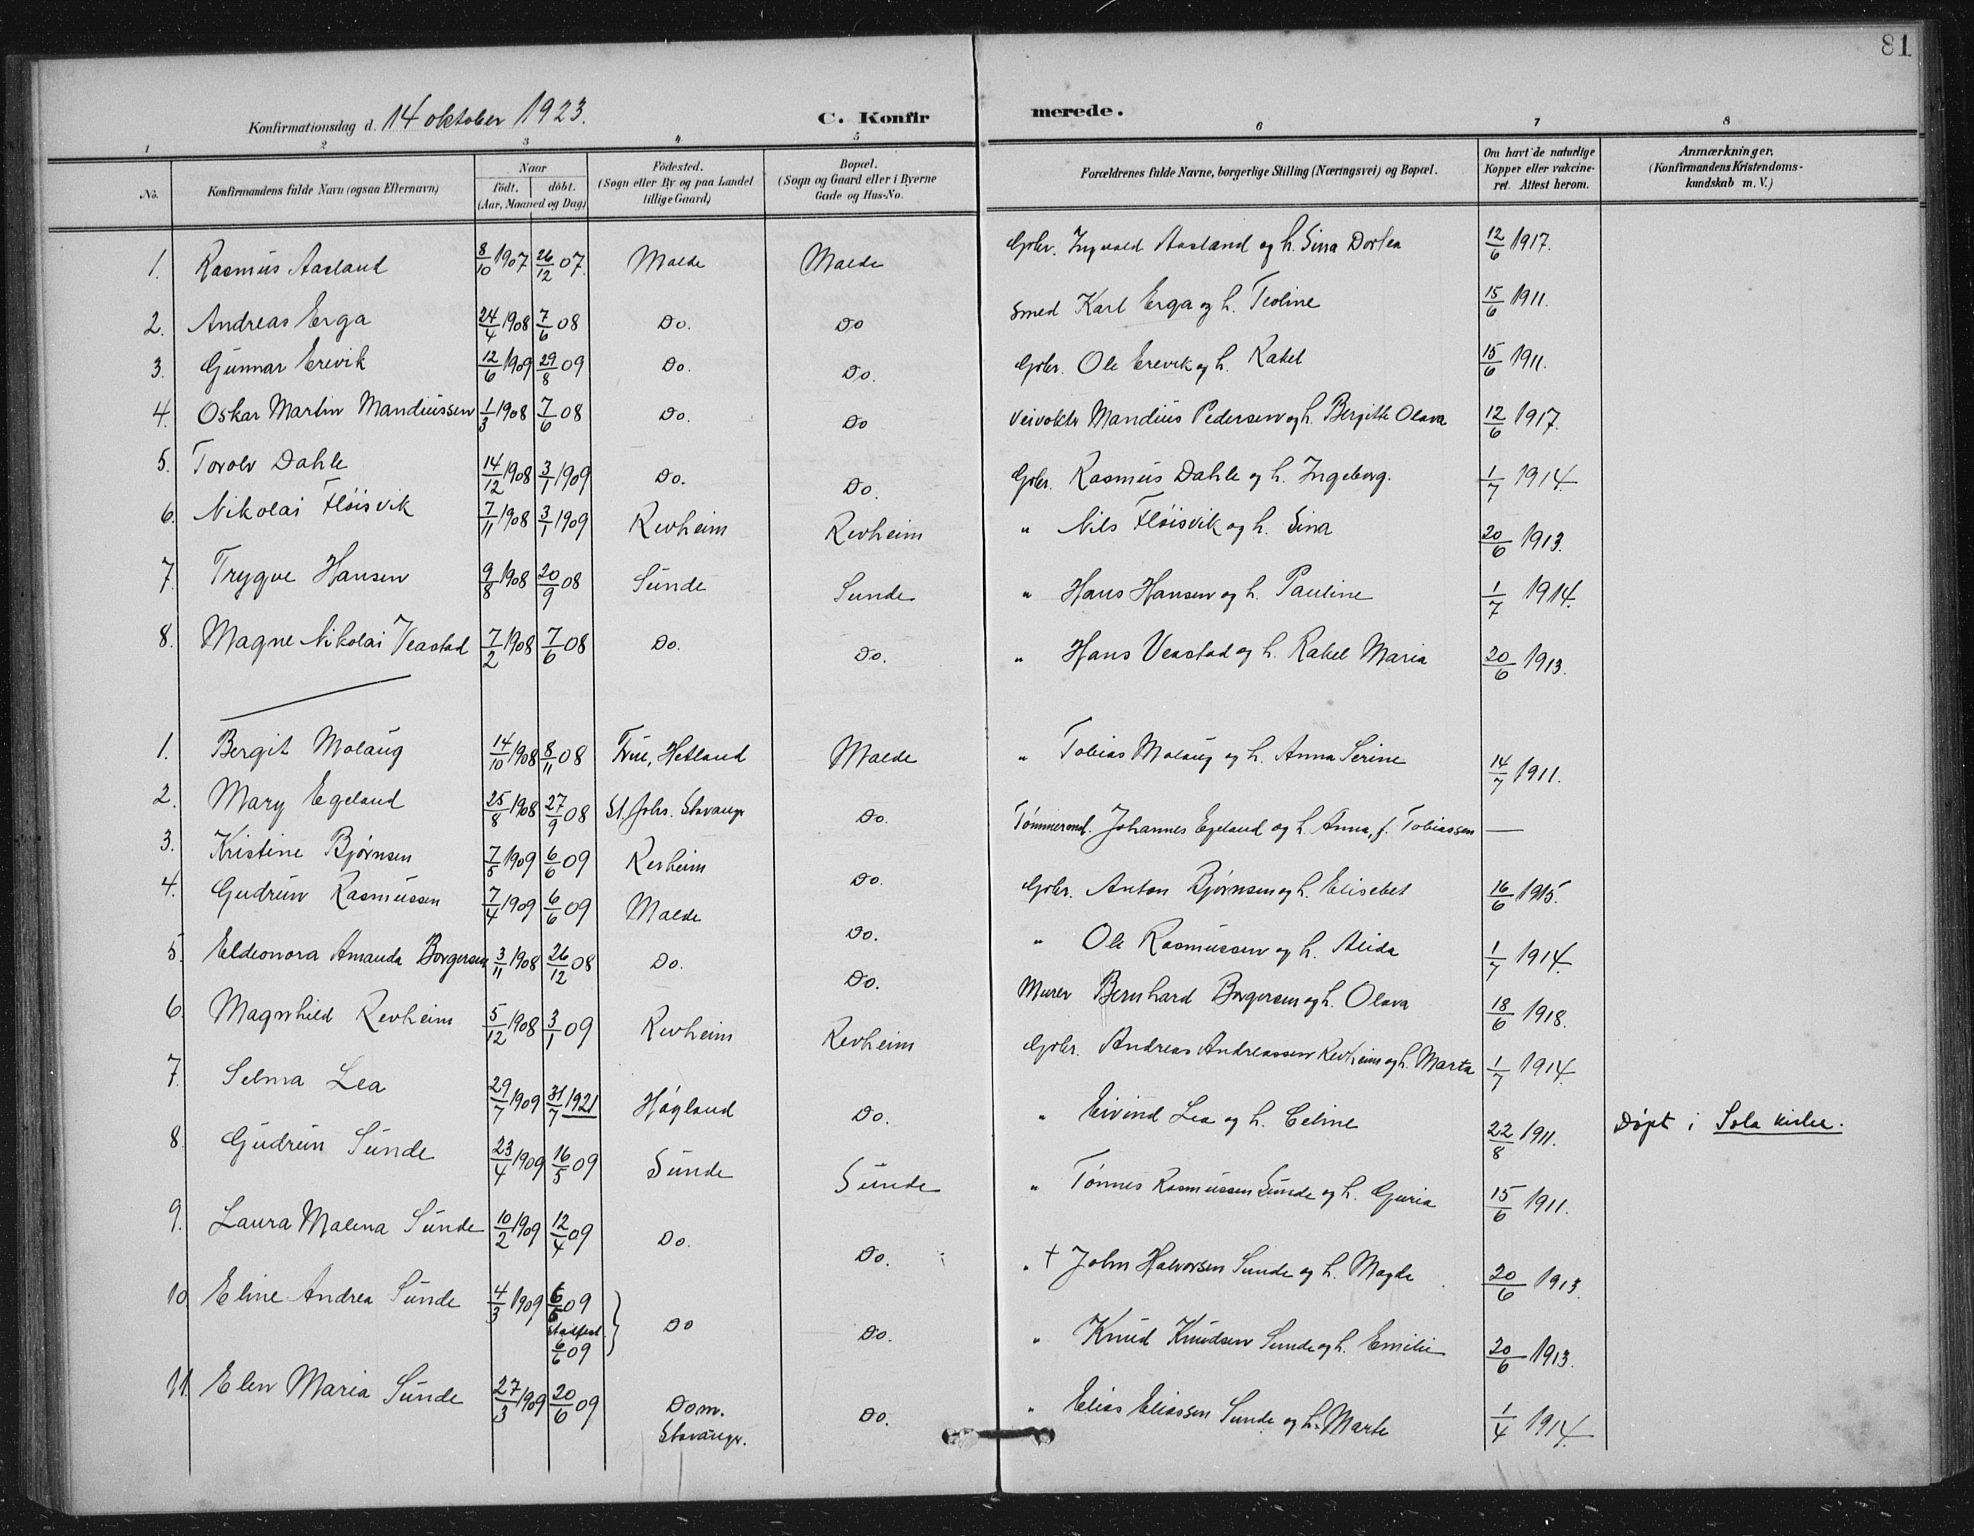 81
Konfirmationsdag d. 14 oktober 1923. C. Konfirmerede.
1 2 3 4 5 6 7 8
No. Konfirmandens fulde Navn (ogsaa Efternavn) Naar født. døbt. (Aar, Maaned og Dag) Fødested. (Sogn eller By og paa Landet tillige Gaard) Bopæl. (Sogn og Gaard eller i Byerne Gade og Hus-No. Forældrenes fulde Navne, borgerlige Stilling (Næringsvei) og Bopæl. Om havt de naturlige Kopper eller vakcineret. Attest herom. Anmærkninger, (Konfirmandens Kristendomskundskab m. V.)
1. Rasmus Aasland 8/10 1907 26/12 07. Malde Malde Gbr. Ingvald Aasland og h. Sina Dortea 12/6 1917.
2. Andreas Erga 24/4 1908 7/6 08 Do. Do Smed Karl Erga og h. Teoline 15/6 1911.
3. Gunnar Erevik 12/6 1909 29/8 09 Do. Do. Gbr. Ole Erevik og h. Rakel 15/6 1911.
4. Oskar Martin Mandiussen 1/3 1908 7/6 08 Do. Do Veivokter Mandius Pedersen og h. Bergitte Olava 12/6 1917.
5. Torolv Dahle 14/12 1908 3/1 1909 Do. Do. Gbr. Rasmus Dahle og h. Ingeborg. 1/7 1914.
6. Nikolai Fløisvik 7/11 1908 3/1 1909 Revheim Revheim " Nils Fløisvik og h. Sina 20/6 1913.
7. Trygve Hansen 9/8 1908 20/9 08 Sunde Sunde " Hans Hansen og h. Pauline 1/7 1914.
8. Magne Nikolai Veastad 7/2 1908 7/6 08 Do. Do. " Hans Veastad og h. Rakel Maria 20/6 1913.
1. Bergit Molaug 14/10 1908 8/11 08 Frue, Hetland Malde " Tobias Molaug og h. Anna Serine 14/7 1911.
2. Mary Egeland 25/8 1908 27/9 08 St. Johs. Stavanger Do. Tømmermd. Johannes Egeland og h. Anna, f. Tobiassen —
3. Kristine Bjørnsen 7/5 1909 6/6 09 Revheim Do. Gbr. Anton Bjørnsen og h. Elisebet 16/6 1915.
4. Gudrun Rasmussen 7/4 1909 6/6 09 Malde Do. " Ole Rasmussen og h. Alida 1/7 1914.
5. Eldeonora Amanda Borgersen 3/11 1908 26/12 08 Do. Do. Murer Bernhard Borgersen og h. Olava 18/6 1918.
6. Magnhild Revheim 5/12 1908 3/1 09 Revheim Revheim Gbr. Andreas Andreassen Revheim og h. Marta 1/7 1914.
7. Selma Lea 29/7 1909 31/7 1921 Høgland Do. " Eivind Lea og h. Celine 22/8 1911. Døpt i Sola kirke.
8. Gudrun Sunde 23/4 1909 16/5 09 Sunde Sunde " Tønnes Rasmussen Sunde og h. Guria 15/6 1911.
9. Laura Malena Sunde 10/2 1909 12/4 09 Do. Do. " † John Halvorsen Sunde og h. Magda 20/6 1913.
10. Eline Andrea Sunde 4/3 1909 6/5 09 stadfest. 6/6 09 Do Do. " Knud Knudsen Sunde og h. Emilie 20/6 1913.
11. Elen Maria Sunde 27/3 1909 20/6 09 Dom. Stavanger. Do. " Elias Eliassen Sunde og h. Marte 1/4 1914.